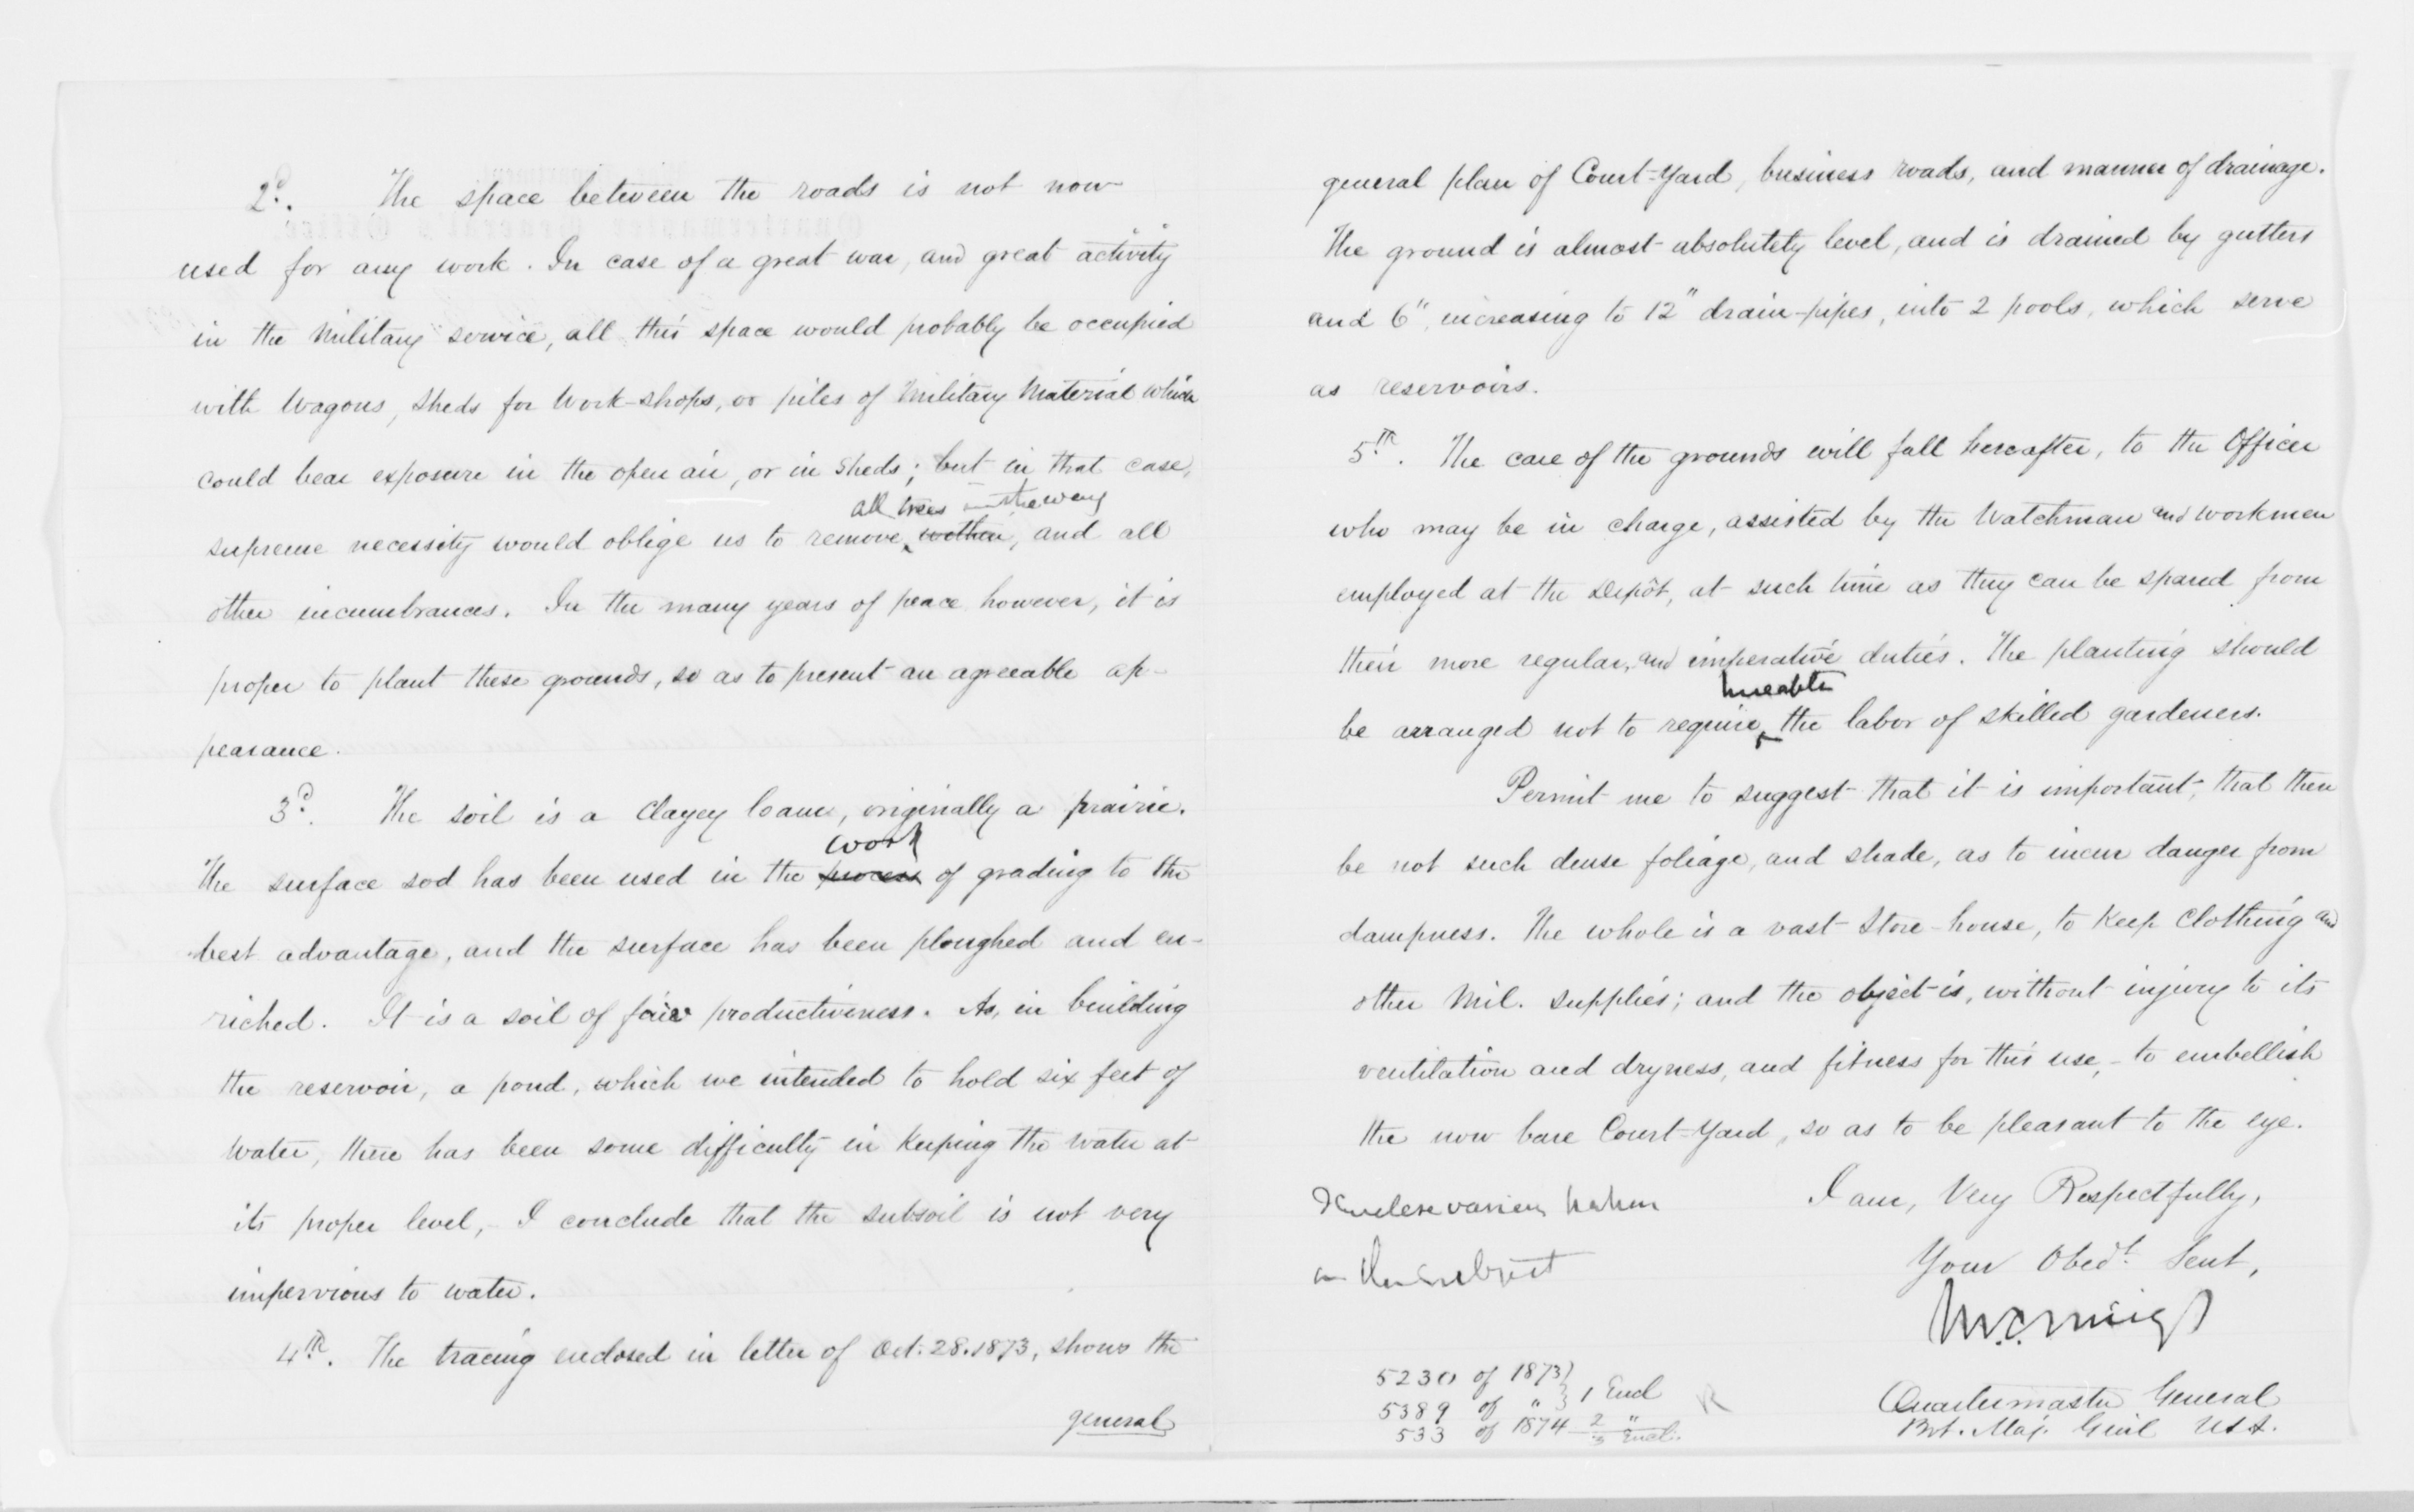 2d. The space between the roads is not now
used for any work. In case of a great war, and great activity
in the Military service, all this space would probably be occupied
with Wagons, Sheds for Work-shops, or piles of Military Material which
could bear exposure in the open air, or in Sheds; but in that case,
all trees in the way
supreme necessity would oblige us to remove, and all
other incumbrances. In the many years of peace however, it is
proper to plant these grounds, so as to present an agreeable ap-
pearance.
3d. The soil is a Clayey loam, originally a prairie.
work
The surface sod has been used in the process of grading to the
best advantage, and the surface has been ploughed and en-
riched. It is a soil of fair productiveness. As, in building
the reservoir, a pond, which we intended to hold six feet of
Water, there has been some difficulty in Keeping the Water at
its proper level, I conclude that the subsoil is not very
impervious to water.
4th. The tracing enclosed in letter of Oct. 28. 1873, shows the
general
general plan of Court-Yard, business roads, and manner of drainage.
The ground is almost absolutely level, and is drained by gutters
and 6", increasing to 12" drain-pipes, into 2 pools, which serve
as reservoirs.
5th. The care of the grounds will fall hereafter, to the Officer
who may be in charge, assisted by the Watchman and workmen
employed at the Depôt, at such time as they can be spared from
their more regular, and imperative duties. The planting should
be arranged not to require the labor of skilled gardeners.
Permit me to suggest that it is important, that there
be not such dense foliage, and shade, as to incur danger from
dampness. The whole is a vast Store-house, to Keep Clothing and
other Mil. supplies; and the object is, without injury to its
ventilation and dryness, and fitness for this use, - to embellish
the now bare Court-Yard, so as to be pleasant to the eye.
I am, Very Respectfully,
Your Obedt. Sevt,
I enclose various
on the subject
M.C. Meigs
Quartermaster General
Bvt. Maj. Genl USA.
5230 of 1873 } 1 Encl
5389 of " }
533 of 1874 2 "
3 Encl.